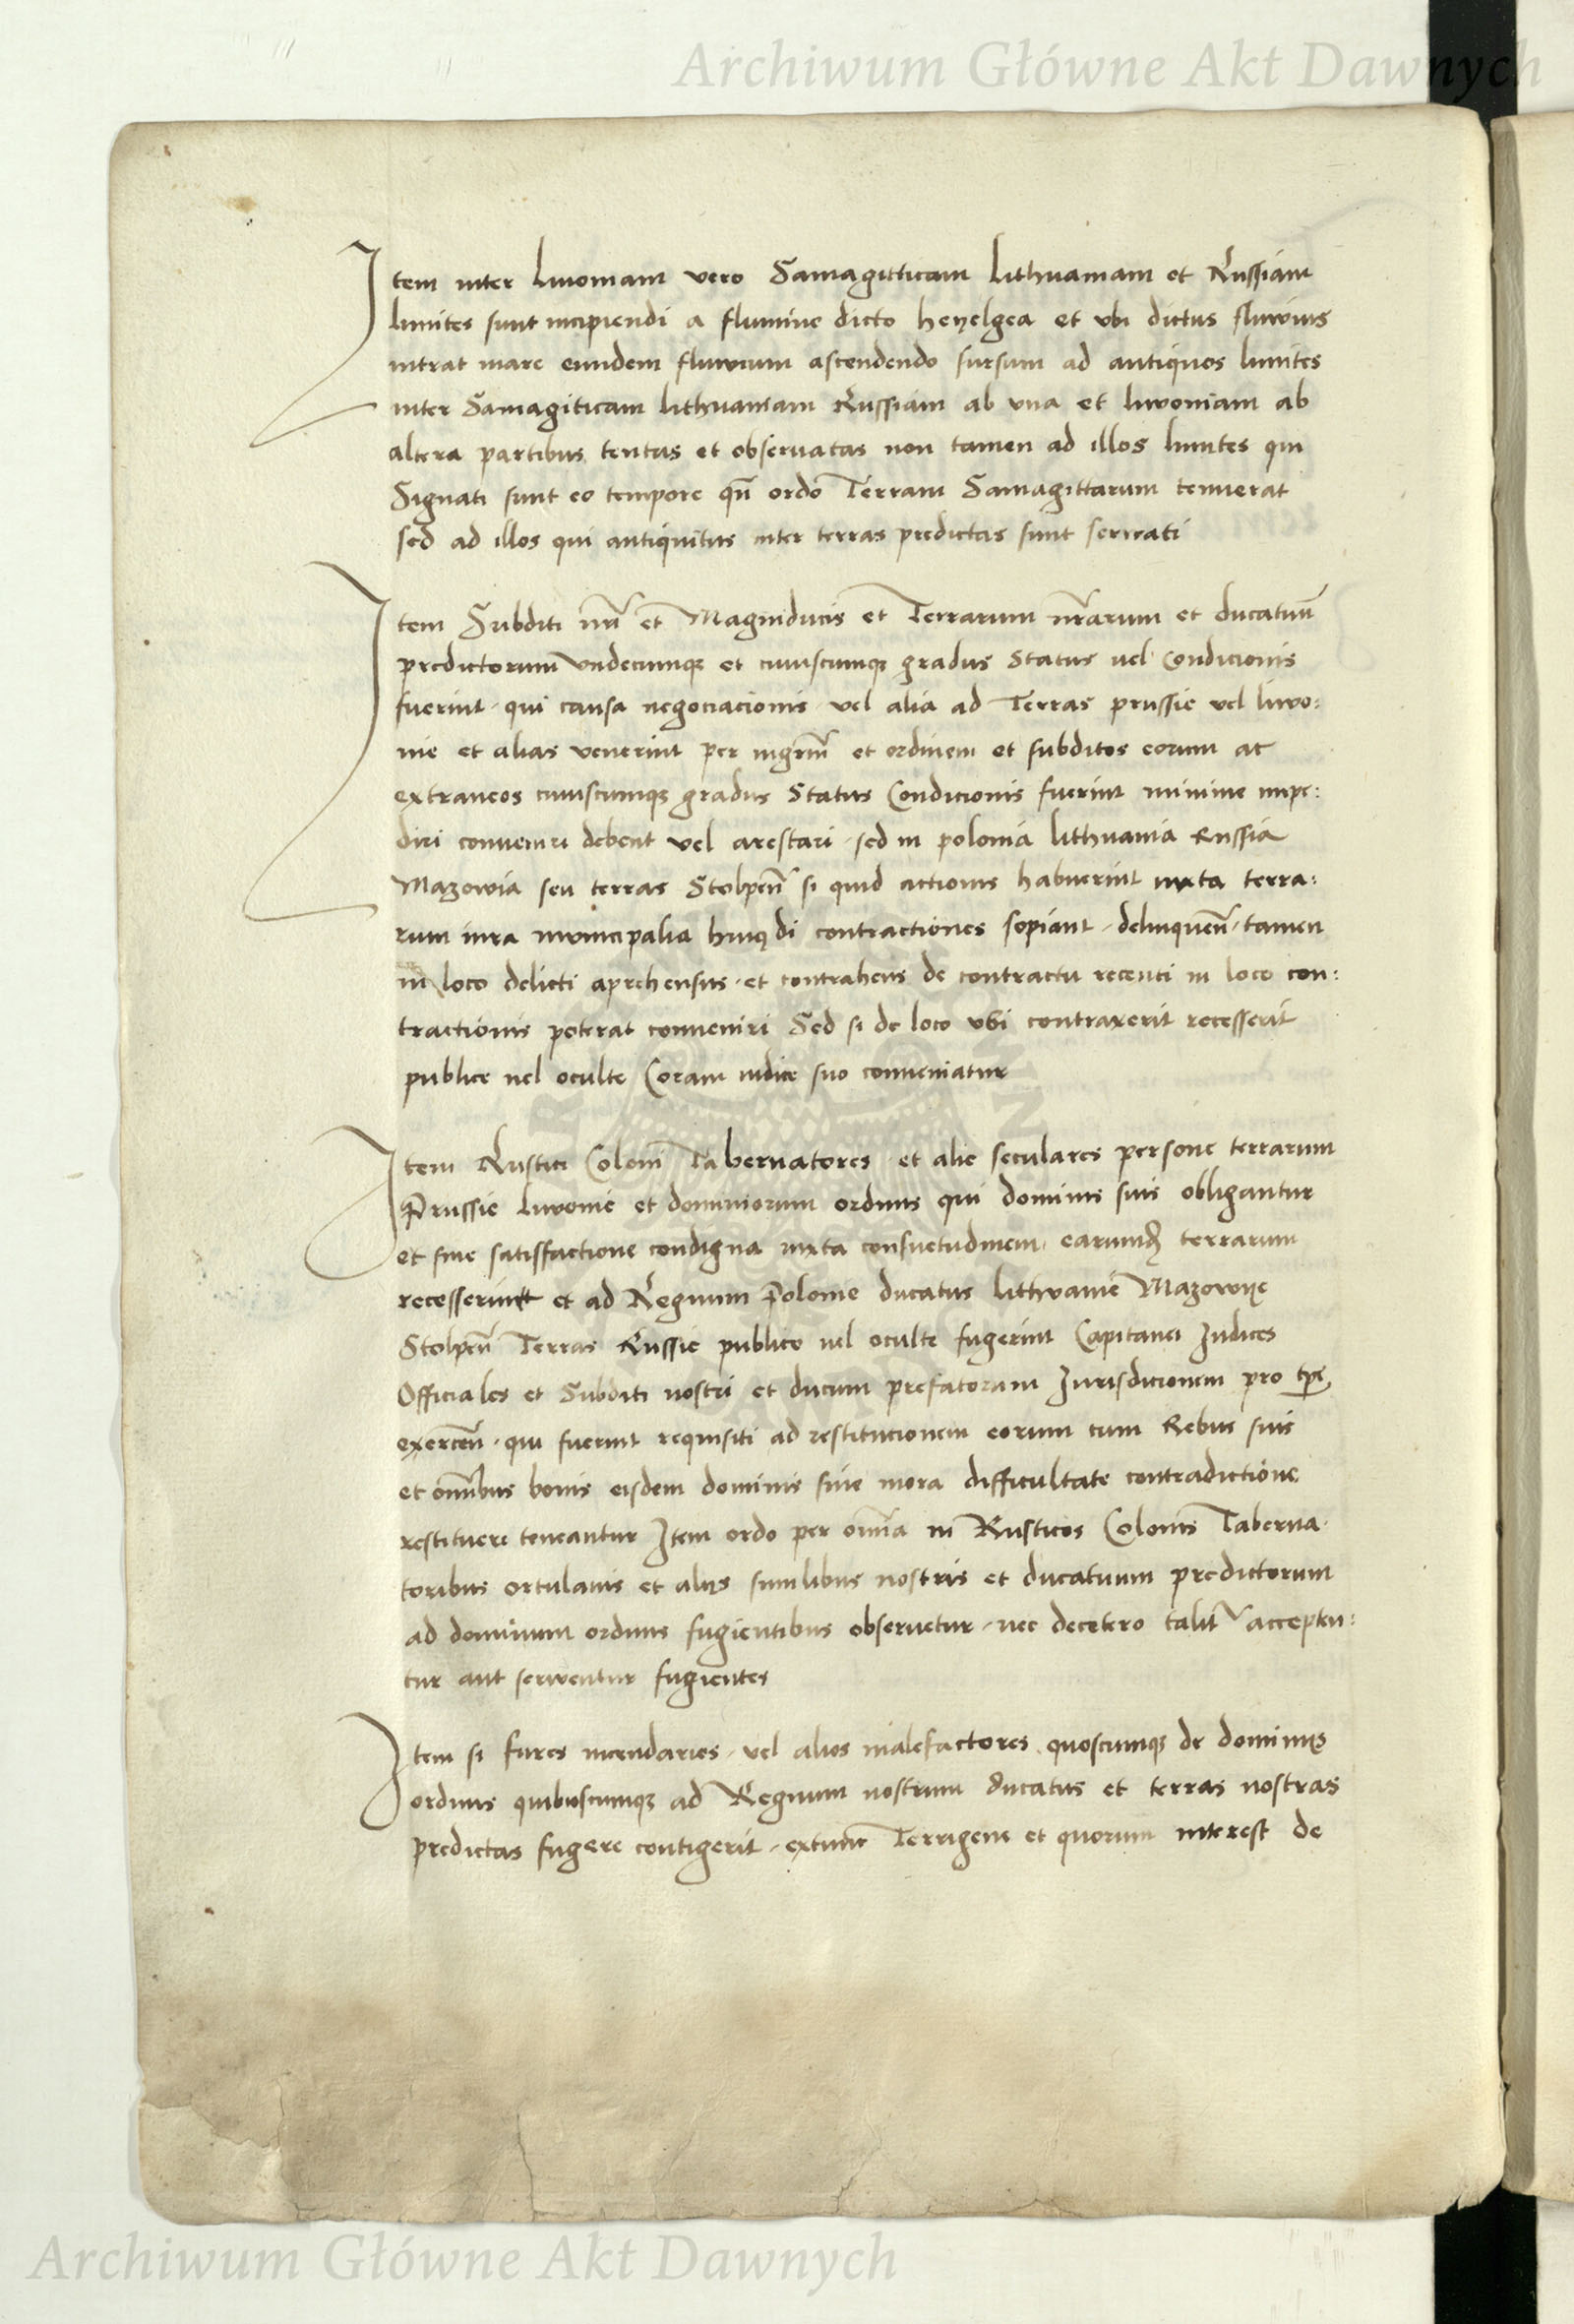 Archiwum Główne Akt Dawnych
Item inter Livoniam vero Samagitticam Lithvaniam et Russiam
limites sunt incipiendi a flumine dicto heyelgea et vbi dictus fluvius
intrat mare eundem fluvium ascendendo sursum ad antiquos limites
inter Samagiticam Lithvaniam Russiam ab vna et Livoniam ab
altera partibus tentas et obseruatas non tamen ad illos limites qui
Signati sunt eo tempore qn̄ ordo Terram Samagittarum tenuerat
sed ad illos qui antiquitus inter terras predictas sunt servati
Item Subditi nr̄i et Magniducis et Terrarum nr̄arum et ducatuū
predictorum vndecumqꝫ et cuiuscumqꝫ gradus Status uel Condicionis
fuerint · qui causa negociacionis vel alia ad Terras prussie vel livo:
nie et alias venerint per mgr̄m et ordinem et subditos eorum ac
extraneos cuiuscumqꝫ gradus Status Condicionis fuerint minime impe:
diri conueniri debent vel arestari · sed in polonia lithvania Russia
Mazowia seu terras Stolpen̄ si quid actionis habuerint iuxta terra:
rum iura municipalia huiusdi contractiones sopiant · delinquen̄ · tamen
in loco delicti aprehensus · et contrahens de contractu recenti in loco con:
tractionis poterat conueniri Sed si de loco vbi contraxerit recesserit
publice uel oculte Coram iudice suo conueniatur
Item Rustici Coloni Tabernatores · et alie seculares persone terrarum
Prussie Livonie et dominiorum ordinis qui dominis suis obligantur
et sine satisfactione condigna iuxta consuetudinem earumdꝫ terrarum
recesserint et ad Regnum Polonie ducatus lithvanie Mazowye
Stolpen̄ Terras Russie publice uel oculte fugerint Capitanei Judices
Officiales et Subditi nostri et ducum prefatorum Jurisdicionem pro tp̄e
exercen̄ · qui fuerint requisiti ad restitucionem eorum cum Rebus suis
et om̄ibus bonis eisdem dominis sine mora difficultate contradictione
restituere teneantur Item ordo per om̄ia in Rusticos Colonis Taberna·
toribus ortulanis et alijs similibus nostris et ducatuum predictorum
ad dominium ordinis fugientibus obseruetur · nec decetero talit̄ accepten:
tur aut serventur fugientes
Item si fures incendarios · vel alios malefactores quoscumqꝫ de dominijs
ordinis quibuscumqꝫ ad Regnum nostrum ducatus et terras nostras
predictas fugere contigerit · extunc Terrigene et quorum interest de
Archiwum Główne Akt Dawnych